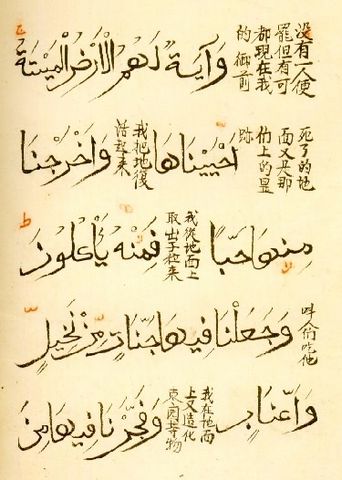 没有一人使
罷但有可
都現在我
的御前
وَآيَةٌ لَهُمُ الْأَرْضُ الْمَيْتَةُ
死了的地
面又是那
他上的显
跡
اَحْيَيْنَاهَا
我把地復
活起来
وَاَخْرَجْنَا
مِنْهَا حَبًّا
我從地面上
取出子粒来
فَمِنْهُ يَأْكُلُونَ
吃他
وَجَعَلْنَا فِيهَا جَنَّاتٍ مِنْ نَخِيلٍ
وَاَعْنَابٍ
我在地面
上又造化
园等物
وَفَجَّرْنَا فِيهَا مِنَ